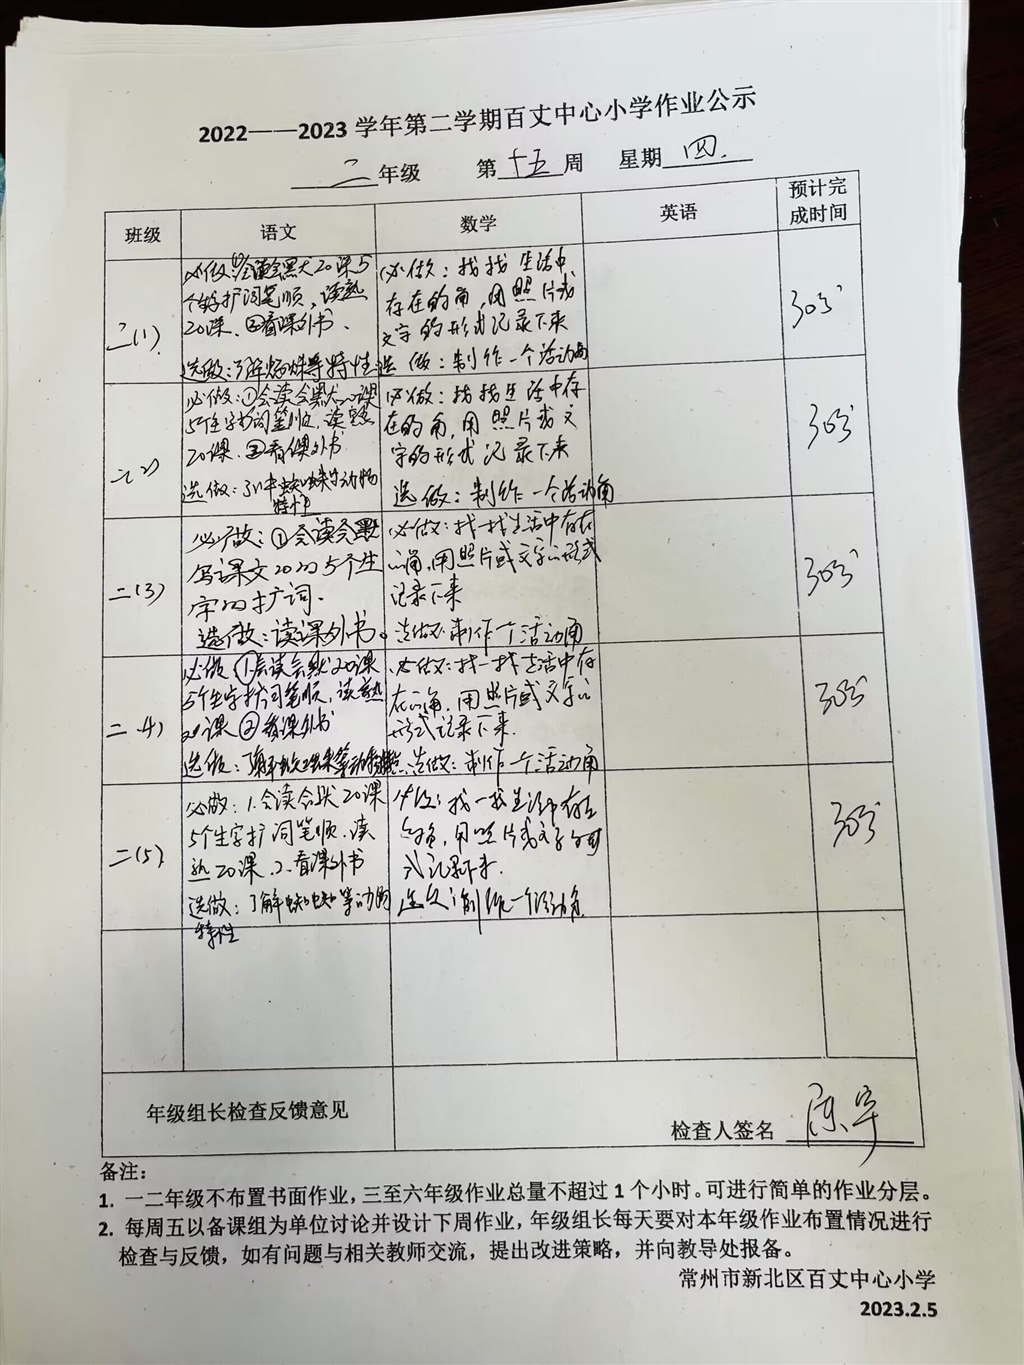 2022——2023 学年第二学期百丈中心小学作业公示
二年级 第十五周 星期四.
班级 语文 数学 英语 预计完成时间
二(1)
20课5
个生字扩词笔顺、读熟
20课、②看课外书.
选做:了解蜘蛛等特性
必做:找找生活中
存在的角,用照片或
文字的形式记录下来
选做:制作一个活动角
30分
二(2)
必做:①会读会默20课
5个生字扩词笔顺,读熟
20课、②看课外书
选做:了解蜘蛛等动物
特性
必做:找找生活中存
在的角,用照片或文
字的形式记录下来
选做:制作一个活动角
30分
二(3)
必做:①会读会默
写课文20的5个生
字的扩词.
选做:读课外书。
必做:找一找生活中存在
的角,用照片或文字的形式
记录下来
选做:制作一个活动角
30分
二(4)
必做①会读会默20课
5个生字扩词笔顺,读熟
20课②看课外书
选做:了解蜘蛛等动物特点
必做:找一找生活中存
在的角,用照片或文字的
形式记录下来.
选做:制作一个活动角
30分
二(5)
必做:1.会读会默20课
5个生字扩词笔顺.读
熟20课.2.看课外书
选做:了解蜘蛛等动物
特性
必做:找一找生活中存在
的角,用照片或文字的形
式记录下来.
选做:制作一个活动角
30分
年级组长检查反馈意见
检查人签名 陈宇
备注:
1. 一二年级不布置书面作业,三至六年级作业总量不超过1个小时。可进行简单的作业分层。
2. 每周五以备课组为单位讨论并设计下周作业,年级组长每天要对本年级作业布置情况进行
检查与反馈,如有问题与相关教师交流,提出改进策略,并向教导处报备。
常州市新北区百丈中心小学
2023.2.5